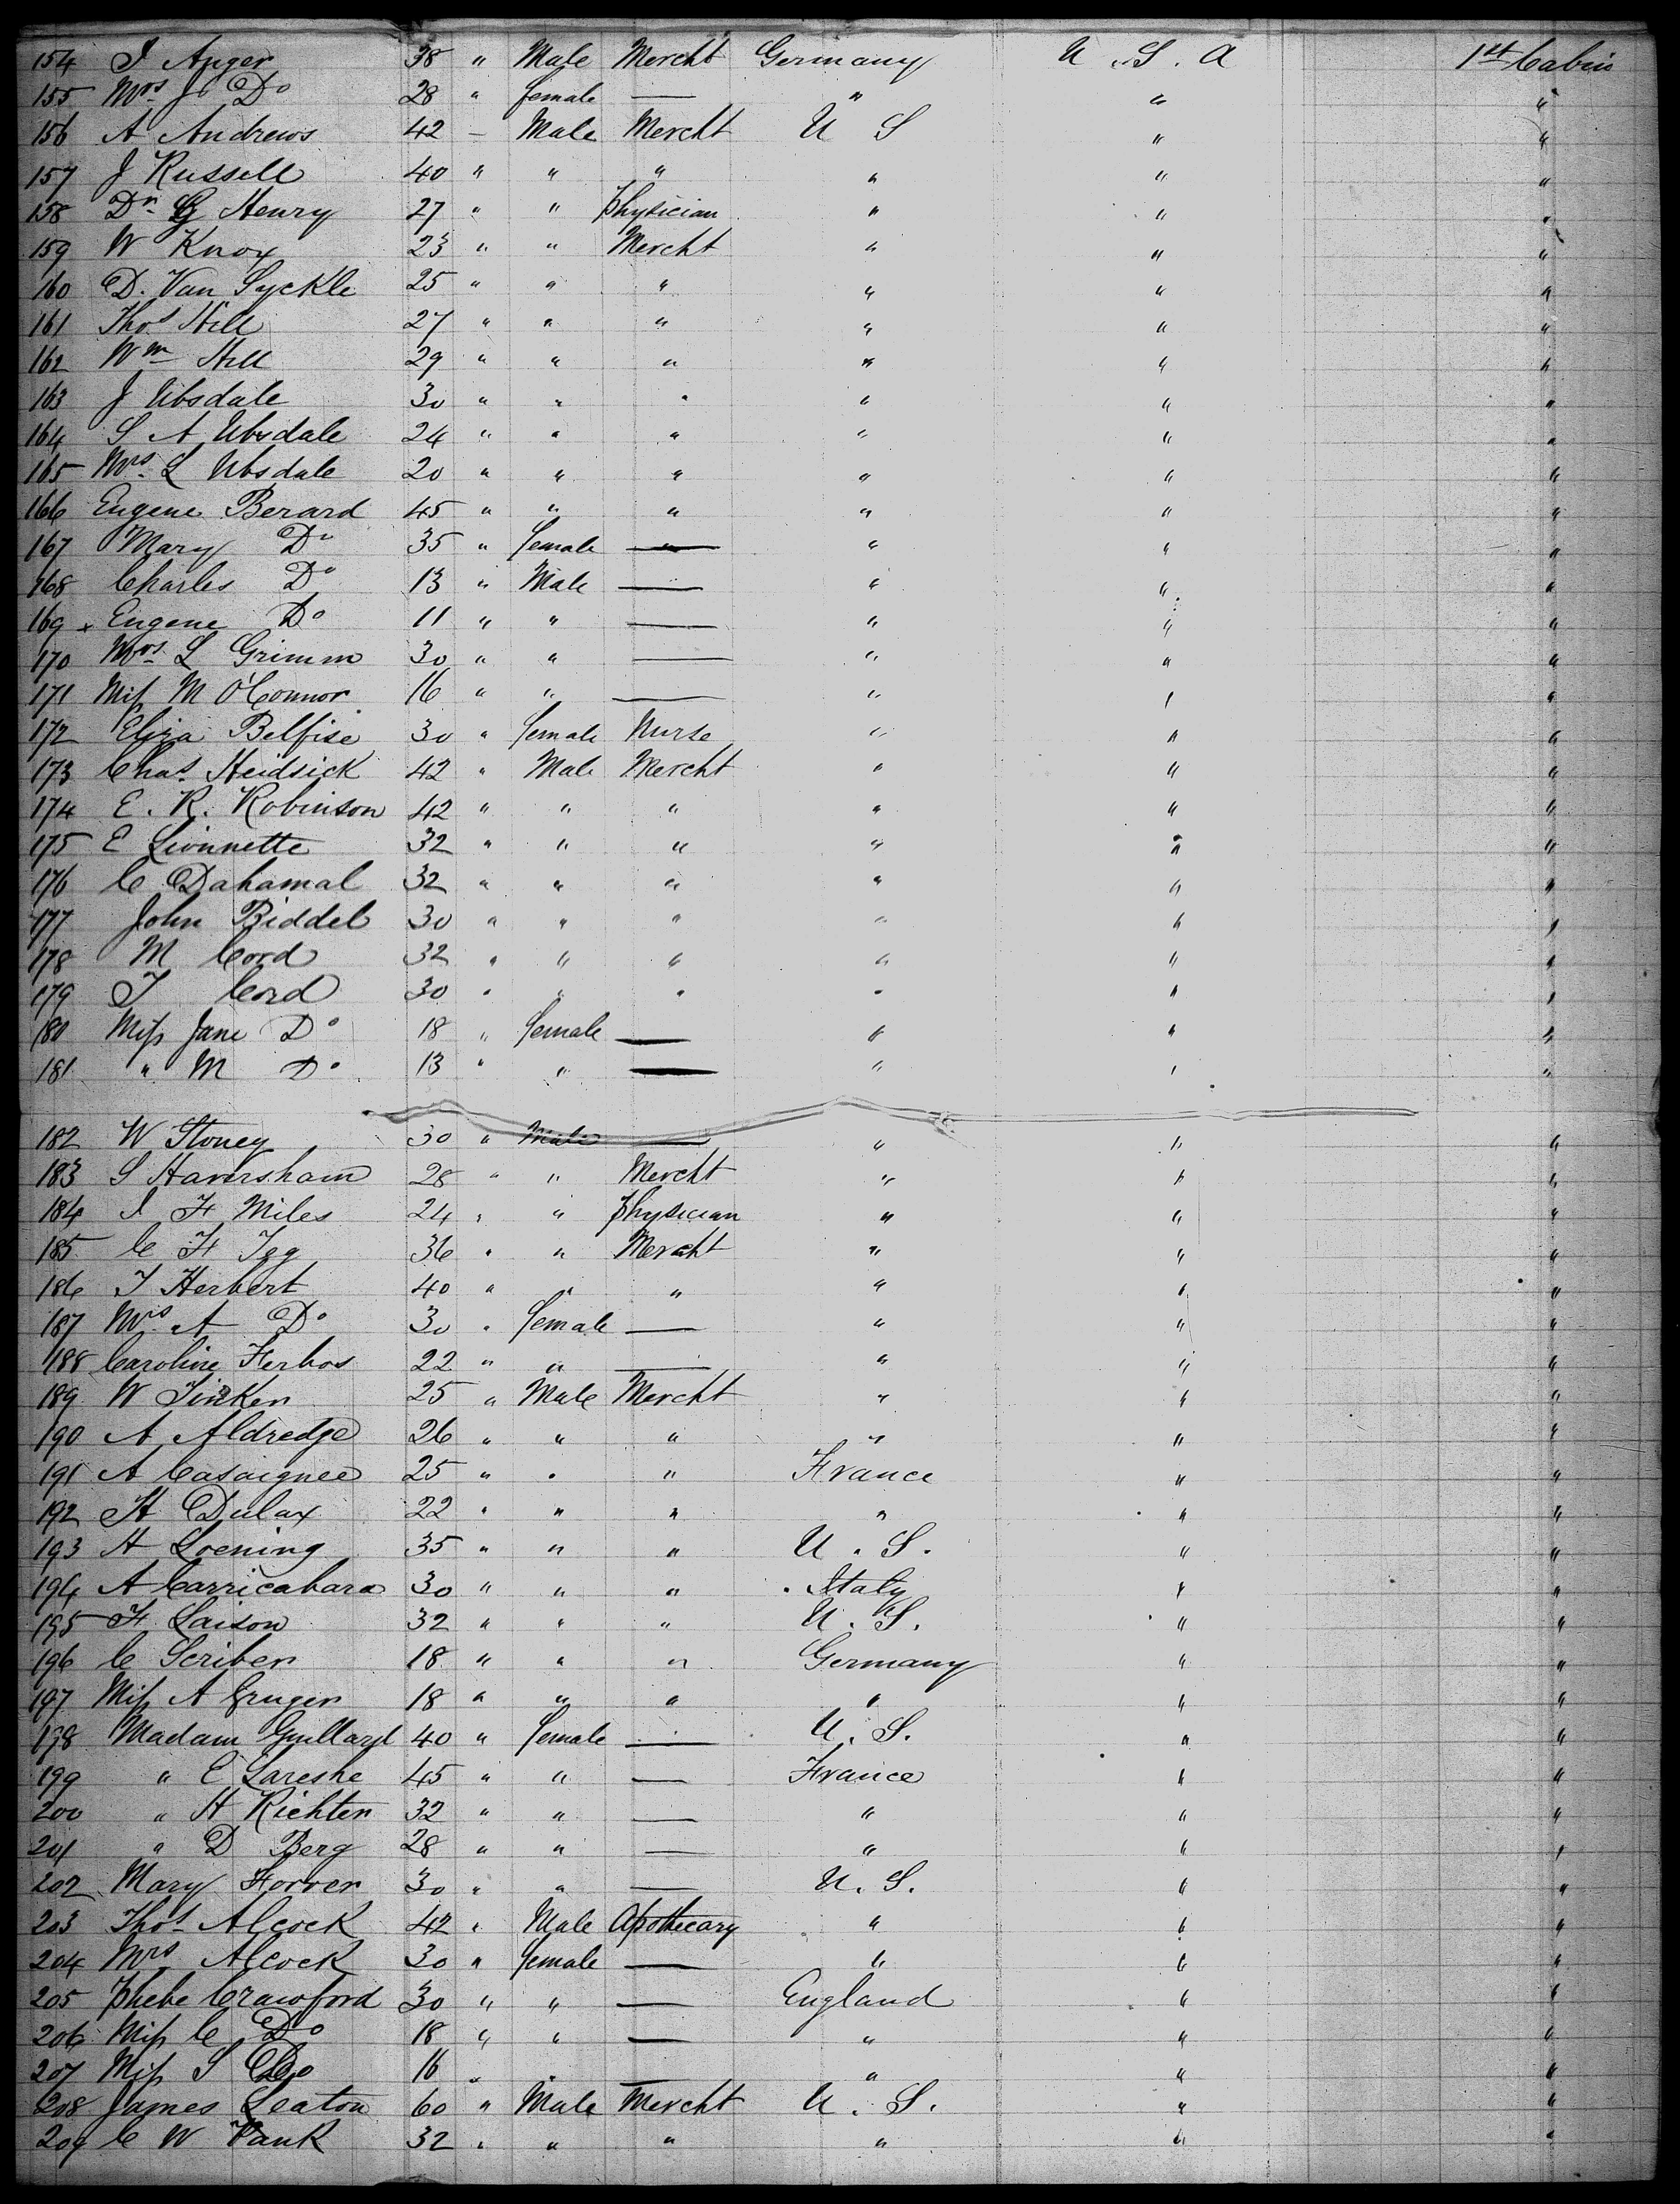 154 J Anger 38 " Male Mercht Germany U.S.A 1st Cabin
155 Mrs J Do 28 " female — " " "
156 A Andrews 42 — Male Mercht U S " "
157 J Russell 40 " " " " " "
158 Dr G Henry 27 " " Physician " " "
159 W Knox 23 " " Mercht " " "
160 D. Van Syckle 25 " " " " " "
161 Thos Hill 27 " " " " " "
162 Wm Hill 29 " " " " " "
163 J Ubsdale 30 " " " " " "
164 S A Ubsdale 24 " " " " " "
165 Mrs L Ubsdale 20 " " " " " "
166 Eugene Berard 45 " " " " " "
167 Mary Do 35 " female — " " "
168 Charles Do 13 " Male — " " "
169 x Eugene Do 11 " " — " " "
170 Mrs L Grimm 30 " " — " " "
171 Miss M O'Connor 16 " " — " " "
172 Eliza Belfise 30 " female Nurse " " "
173 Chas. Heidsick 42 " Male Mercht " " "
174 E. R. Robinson 42 " " " " " "
175 E Lionnette 32 " " " " " "
176 C Dahamal 32 " " " " " "
177 John Biddel 30 " " " " " "
178 M Cord 32 " " " " " "
179 J Cord 30 " " " " " "
180 Miss Jane Do 18 " female — " " "
181 " M Do 13 " " — " " "
182 W Stoney 30 " Male — " " "
183 S Haversham 28 " " Mercht " " "
184 I F Miles 24 " " Physician " " "
185 C F Igg 36 " " Mercht " " "
186 J Herbert 40 " " " " " "
187 Mrs A Do 30 " female — " " "
188 Caroline Ferbos 22 " " — " " "
189 W Tinker 25 " Male Mercht " " "
190 A Aldredge 26 " " " " " "
191 A Casaignee 25 " " " France " "
192 H Dulax 22 " " " " " "
193 H Loening 35 " " " U. S. " "
194 A Carricabara 30 " " " Italy " "
195 F Laison 32 " " " U. S. " "
196 C Scriber 18 " " " Germany " "
197 Miss A Cruger 18 " " " " " "
198 Madam Guillard 40 " female — U. S. " "
199 " E Lareshe 45 " " — France " "
200 " H Richter 32 " " — " " "
201 " D Berg 28 " " — " " "
202 Mary Forrer 30 " " — U. S. " "
203 Thos Alcock 42 " Male Apothecary " " "
204 Mrs Alcock 30 " female — " " "
205 Phebe Crawford 30 " " — England " "
206 Miss C Do 18 " " — " " "
207 Miss S Do 16 " " — " " "
208 James Leaton 60 " Male Mercht U. S. " "
209 C W Vank 32 " " " " " "